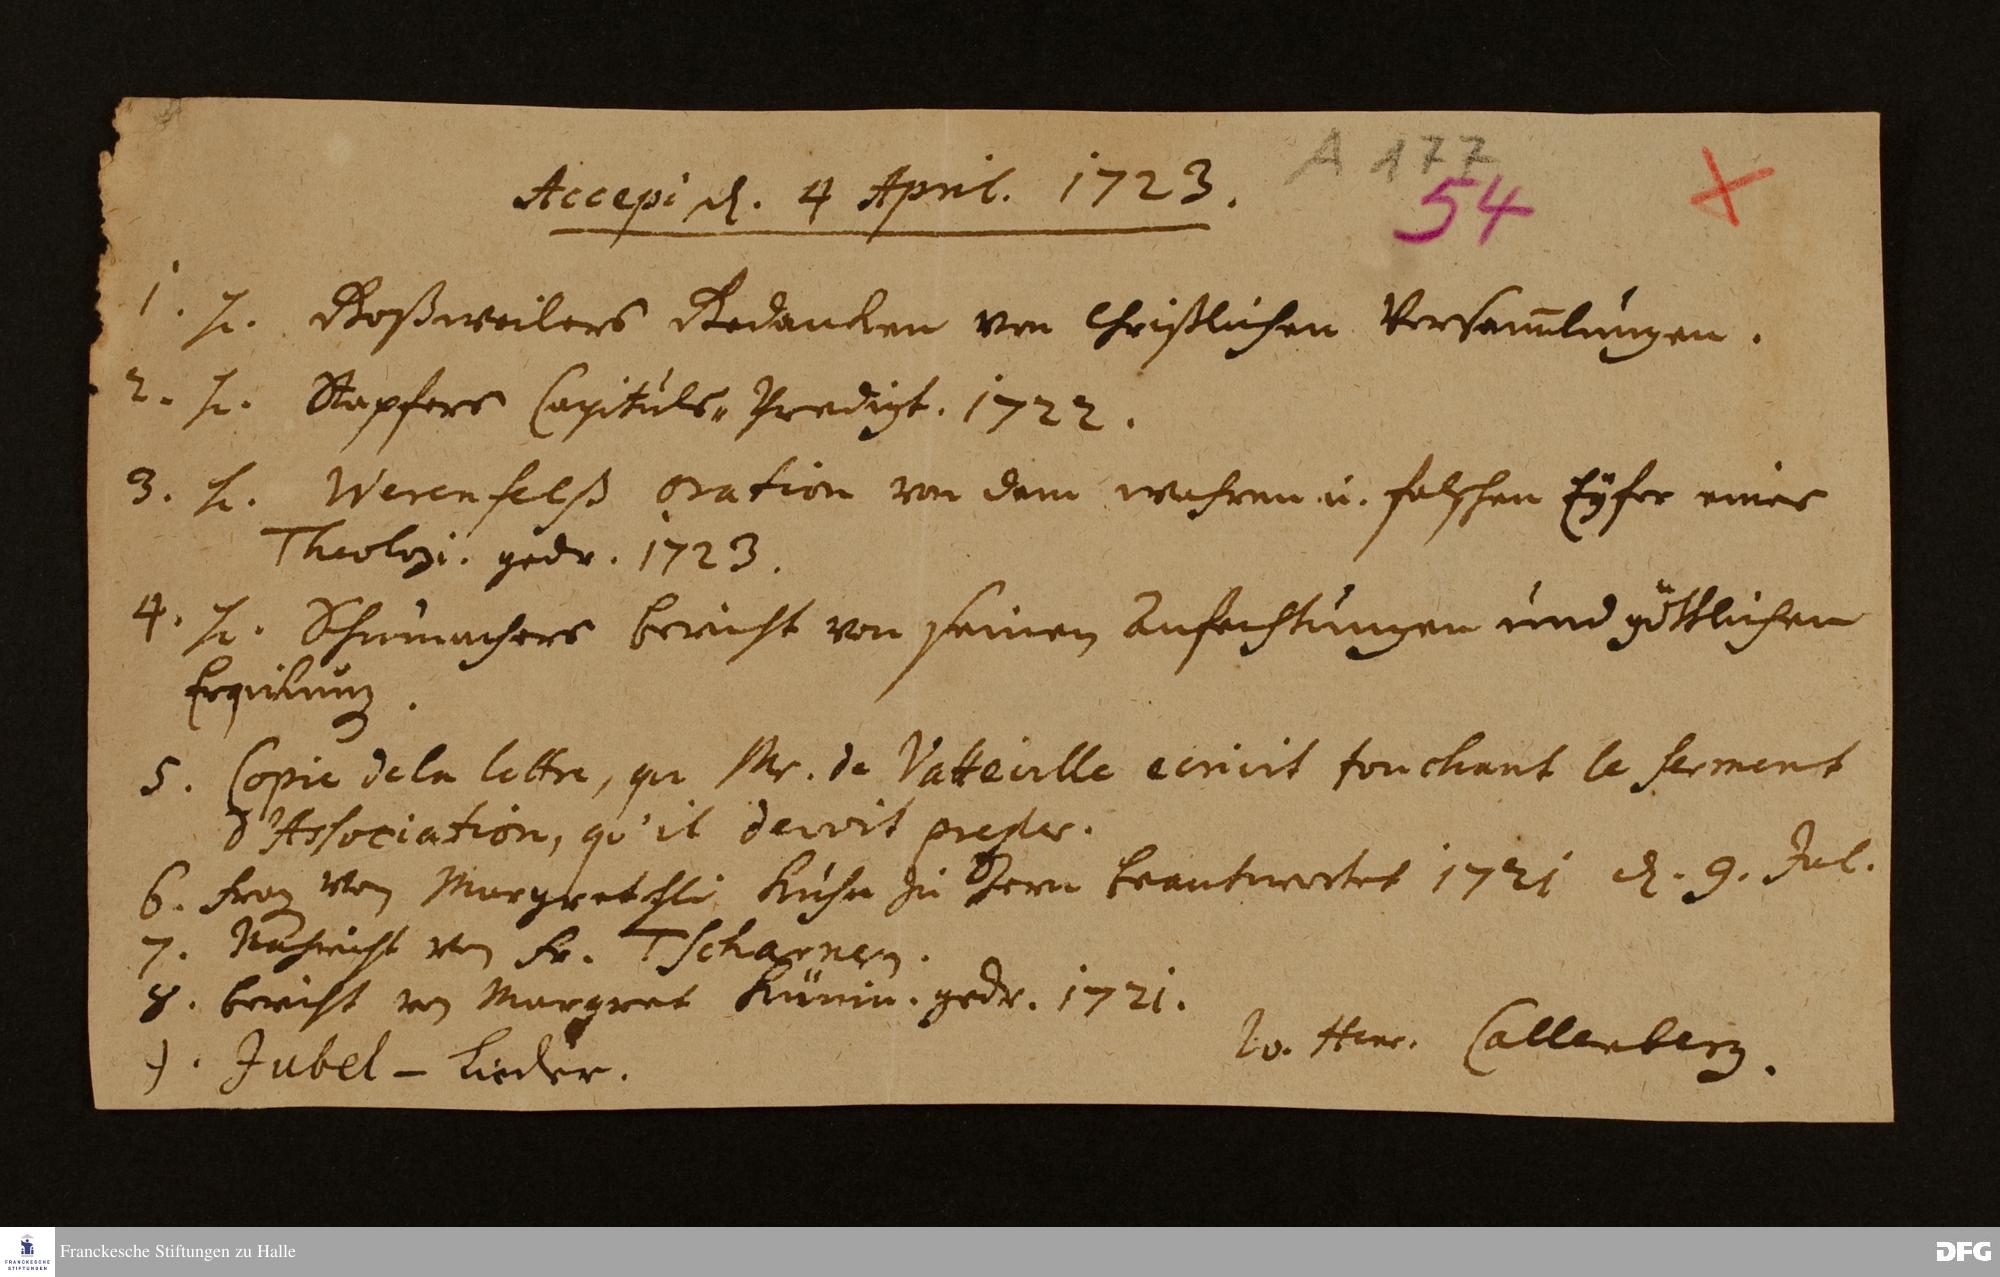 A 177
54
Accepi d. 4 April. 1723.
1. H. Boßweilers Gedancken von Christlichen Versammlungen.
2. H. Stapfers Capituls-Predigt. 1722.
3. H. Werenfelß oration von dem wahren u. falschen Eyfer eines
Theologi. gedr. 1723.
4. H. Schumachers bericht von seinen Anfechtungen und göttlichen
Erquickung.
5. Copie dela lettre, qu Mr. de Vatteville ecrivit touchant le serment
d'Association, qu'il devoit prester.
6. Frag von Margretchli Kuhn zu Bern beantwortet 1721 d. 9. Jul.
7. Nachricht von Fr. Tscharnern.
8. bericht von Margret Künin. gedr. 1721.
9. Jubel-Lieder.
Jo. Henr. Callenberg.
Franckesche Stiftungen zu Halle
FRANCKESCHE
STIFTUNGEN
DFG